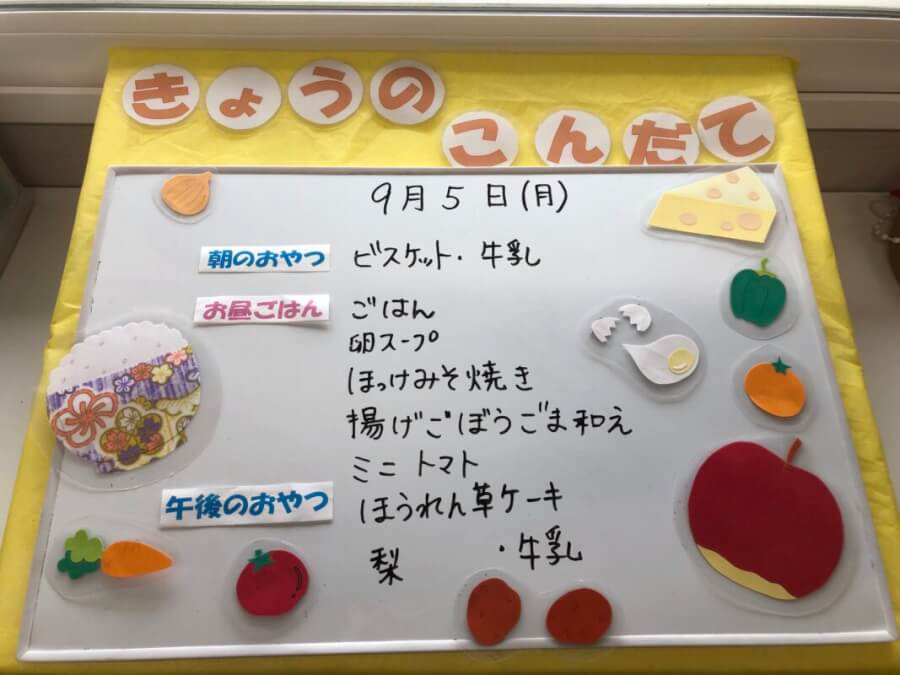 きょうの
こんだて
9月5日(月)
朝のおやつ ビスケット・牛乳
お昼ごはん ごはん
卵スープ
ほっけみそ焼き
揚げごぼうごま和え
ミニトマト
午後のおやつ ほうれん草ケーキ
梨 ・牛乳